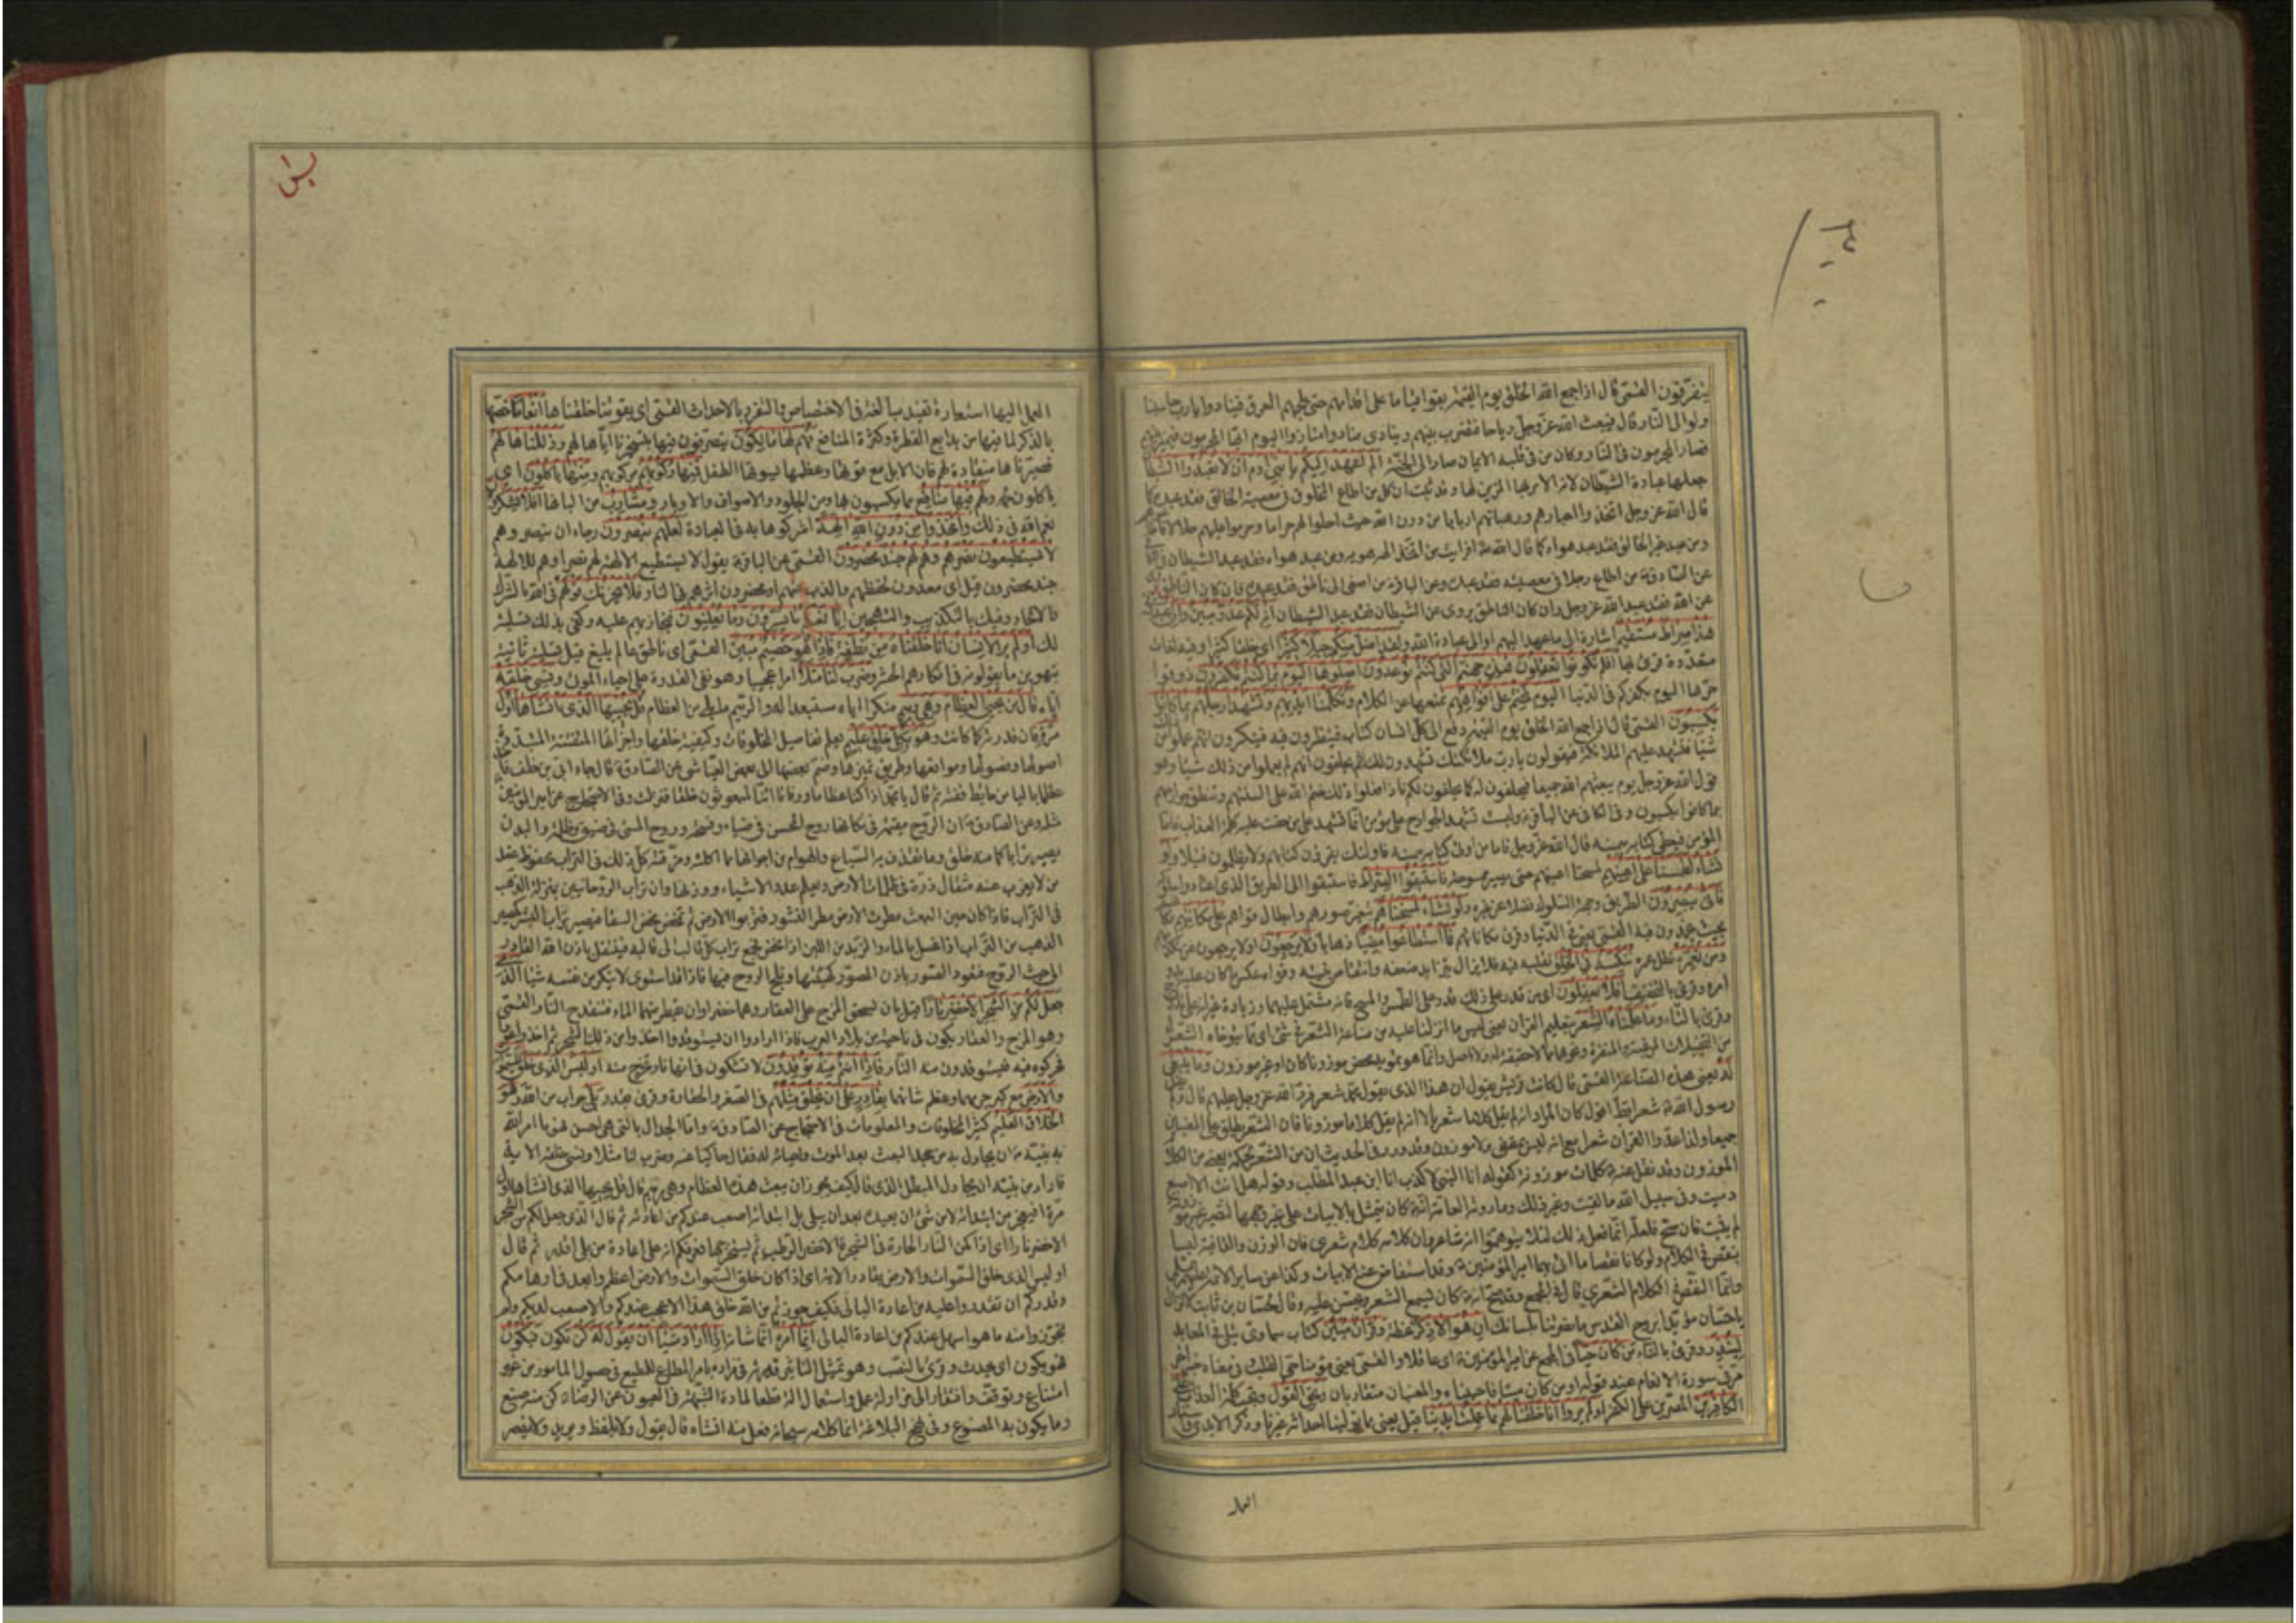 يتفرقون القمّي قال اذا جمع الله الخلق يوم القيمة بقوا قياما على اقدامهم حتى يلجمهم العرق فينادوا يا رب حاسبنا
ولو الى النّار قال فيبعث الله عزّ وجلّ رياحا فتضرب بينهم وينادى مناد وامتازوا اليوم ايّها المجرمون فيميز بينهم
فصار المجرمون فى النار ومن كان فى قلبه الايمان صار الى الجنّة الم اعهد اليكم يا بنى ادم ان لا تعبدوا الشيطان
جعلها عبادة الشّيطان لانه الامر بها المزين لها وقد ثبت ان كل من اطاع المخلوق فى معصية الخالق فقد عبده كما
قال الله عز وجل اتخذوا احبارهم ورهبانهم اربابا من دون الله حيث احلوا لهم حراما وحرموا عليهم حلالا
ومن عبد غير الله فقد عبد هواه كما قال الله افرايت من اتخذ الهه هويه ومن عبد هواه فقد عبد الشيطان
عن الصّادق من اطاع رجلا فى معصية فقد عبده وعن الباقر من اصغى الى ناطق فقد عبده فان كان الناطق
عن الله فقد عبد الله عز وجل وان كان الناطق يروى عن الشّيطان فقد عبد الشيطان انه لكم عدو مبين وان اعبدونى
هذا صراط مستقيم اشارة الى ما عهد اليهم او الى عبادة الله ولقد اضل منكم جبلا كثيرا اى خلقا كثيرا وفيه لغات
متعدّدة قرئ بها افلم تكونوا تعقلون هذه جهنم التى كنتم توعدون اصلوها اليوم بما كنتم تكفرون ذوقوا
حرّها اليوم بكفركم فى الدّنيا اليوم نختم على افواههم نمنعها عن الكلام وتكلّمنا ايديهم وتشهد ارجلهم بما كانوا
يكسبون القمّى قال اذا جمع الله الخلق يوم القيمة دفع الى كل انسان كتابه فينظرون فيه فينكرون انهم عملوا من
شيئا فتشهد عليهم الملائكة فيقولون يا ربّ ملائكتك يشهدون لك ثم يحلفون انهم لم يعملوا من ذلك شيئا وهو
قول الله عز وجل يوم يبعثهم الله جميعا فيحلفون له كما يحلفون لكم فاذا فعلوا ذلك ختم الله على السنتهم وتنطق جوارحهم
بما كانوا يكسبون وفى الكافى عن الباقر وليست تشهد الجوارح على مؤمن انّما تشهد على من حقت عليه كلمة العذاب فامّا
المؤمن فيعطى كتابه بيمينه قال الله عز وجل فاما من اوتى كتابه بيمينه فاولئك يقرؤن كتابهم ولا يظلمون فتيلا ولو
نشاء لطمسنا على اعينهم لمسحنا اعينهم حتى يصير ممسوحة فاستبقوا الصّراط فاستبقوا الى الطريق الذى اعتادوا سلوكه
فانّى يبصرون الطّريق وجهة السّلوك فضلا عن غيره ولو نشاء لمسخناهم بتغيير صورهم وابطال قواهم على مكانتهم
بحيث يجمدون فيه القمّى يعنى فى الدّنيا وقرئ مكاناتهم فما استطاعوا مضيّا ذهابا ولا يرجعون اولا يرجعون عن
ومن نعمّره نطل عمره ننكّسه فى الخلق نقلبه فيه فلا يزال يتزايد ضعفه وانتقاص بنيته وقواه عكس ما كان عليه بدو
امره وقرئ بالتخفيف افلا يعقلون ان من قدر على ذلك قدر على الطّمس والمسخ فانه مشتمل عليهما وزيادة غير انه على
وقرئ بالتّاء وما علّمناه الشّعر بتعليم القران يعنى ليس ما انزلنا عليه من صناعة الشّعر فى شئ اى ممّا يتوخاه الشّعراء
من التخيلات المرغبة والمنفرة ونحوها مما لا حقيقة له ولا اصل وانّما هو تمويه محض موزونا كان او غير موزون وما ينبغى
له يعنى هذه الصّناعة القمّى قال كانت قريش يقول ان هذا الذى يقول محمّد شعر فردّ الله عز وجل عليهم قال ولم
رسول الله شعرا قطّ اقول كان المراد انه لم يقل كلاما شعريّا لا انه لم يقل كلاما موزونا فان الشّعر يطلق على المعنيين
جميعا ولذا عدّوا القران شعرا مع انه ليس بمقفى ولا موزون وقد ورد فى الحديث ان من الشّعر لحكمة يعنى من الكلام
الموزون وقد نقل عنه كلمات موزونة كقوله انا النبى لا كذب انا ابن عبد المطّلب وقوله هل انت الا اصبع
دميت وفى سبيل الله ما لقيت وغير ذلك وما روته العامة انه كان يتمثل بالابيات على غير وجهها لتصير غير موزونة
لم يثبت فان صحّ فلعلّه انّما فعل ذلك لئلا يتوهّموا انه شاعر وان كلامه كلام شعرى فان الوزن والقافية ليسا
بنقص فى الكلام ولو كانا نقصا ما اتى بهما امير المؤمنين وقد استفاض عنه الابيات وكذا عن ساير الائمة
وانّما النّقص فى الكلام الشّعرى قال فى المجمع وقد صحّ انه كان يسمع الشعر ويحثّ عليه وقال لحسّان بن ثابت لا تزال
يا حسّان مؤيّدا بروح القدس ما نصرتنا بلسانك ان هو الا ذكر عظة وقران مبين كتاب سماوى يتلى فى المعابد
لينذر وقرئ بالتّاء من كان حيّا فى المجمع عن امير المؤمنين اى عاقلا والقمّى يعنى مؤمنا حىّ القلب وفى معناه خبر اخر
مرّ فى سورة الانعام عند قوله او من كان ميتا فاحييناه والمعنيان متقاربان ويحقّ القول وتجب كلمة العذاب على
الكافرين المصرّين على الكفر اولم يروا انّا خلقنا لهم ممّا عملت ايدينا قيل يعنى ممّا تولينا احداثه
العمل
العمل اليها استعارة تفيد مبالغة فى الاختصاص والتفرد بالاحداث القمّى اى بقوتنا خلقناها انعاما خصّها
بالذكر لما فيها من بدايع الفطرة وكثرة المنافع فهم لها مالكون يتصرّفون فيها بتسخيرنا ايّاها لهم وذلّلناها لهم
فصيّرناها منقادة لهم فان الابل مع قوتها وعظمها يسوقها الطفل فمنها ركوبهم مركوبهم ومنها ياكلون اى
ياكلون لحمه ولهم فيها منافع بما يكسبون بها ومن الجلود والاصواف والاوبار ومشارب من البانها افلا يشكرون
نعم الله فى ذلك واتّخذوا من دون الله الهة اشركوها به فى العبادة لعلّهم ينصرون رجاء ان ينصروهم
لا يستطيعون نصرهم وهم لهم جند محضرون القمّى عن الباقر يقول لا يستطيع الالهة لهم نصرا وهم للالهة
جند محضرون قيل اى معدون لحفظهم والذب عنهم او محضرون اثرهم فى النار فلا يحزنك قولهم فى الله بالشرك
والالحاد وفيك بالتكذيب والتهجين انّا نعلم ما يسرّون وما يعلنون فنجازيهم عليه وكفى بذلك تسلية
لك اولم ير الانسان انّا خلقناه من نطفة فاذا هو خصيم مبين القمّى اى ناطق عالم بليغ قيل تسلية ثانية
بتهوين ما يقولونه فى انكارهم الحشر وضرب لنا مثلا امرا عجيبا وهو نفى القدرة على احياء الموتى ونسى خلقه
ايّاه قال من يحيى العظام وهى رميم منكرا ايّاه مستبعدا له والرّميم ما بلى من العظام قل يحييها الذى انشاها اوّل
مرّة فان قدرته كما كانت وهو بكلّ خلق عليم يعلم تفاصيل المخلوقات وكيفية خلقها واجزائها المتفتتة المتبدّدة
اصولها وفصولها ومواقعها وطريق تميزها وضم بعضها الى بعض العياشى عن الصّادق قال جاء ابىّ بن خلف فاخذ
عظما باليا من حايط ففته ثم قال يا محمّد اذا كنا عظاما ورفاتا ائنا لمبعوثون خلقا فنزلت وفى الاحتجاج عن امير المؤمنين
مثله وعن الصّادق ان الرّوح مقيمة فى مكانها روح المحسن فى ضياء وفسحة وروح المسئ فى ضيق وظلمة والبدن
يصير ترابا كما منه خلق وما تقذف به السّباع والهوام من اجوافها ممّا اكلته ومزّقته كلّ ذلك فى التراب محفوظ عند
من لا يعزب عنه مثقال ذرّة فى ظلمات الارض ويعلم عدد الاشياء ووزنها وان تراب الرّوحانيين بمنزلة الذّهب
فى التّراب فاذا كان حين البعث مطرت الارض مطر النّشور فتربوا الارض ثم تمخض مخض السقا فيصير تراب البشر كمصير
الذهب من التراب اذا غسل بالماء والزّبد من اللبن اذا مخض فيجمع تراب كل قالب الى قالبه فينتقل باذن الله القادر
الى حيث الروح فتعود الصّور باذن المصوّر كهيئتها وتلج الروح فيها فاذا قد استوى لا ينكر من نفسه شيئا الّذى
جعل لكم من الشّجر الاخضر نارا قيل بان يسحق المرخ على العفار وهما خضراوان يقطر منهما الماء فتنقدح النّار القمّى
وهو المرخ والعفار يكون فى ناحية من بلاد العرب فاذا ارادوا ان يستوقدوا اخذوا من ذلك الشّجر ثم اخذوا عودا
فحركوه فيه فيستوقدون منه النّار فاذا انتم منه توقدون لا تشكون فى انها نار تخرج منه اوليس الّذى خلق السّموات
والارض مع كبر جرمهما وعظم شانهما بقادر على ان يخلق مثلهم فى الصّغر والحقارة وقرئ يقدر بلى جواب من الله وهو
الخلّاق العليم كثير المخلوقات والمعلومات فى الاحتجاج عن الصّادق وامّا الجدال بالتى هى احسن فهو ما امر الله
به نبيّه ان يجادل به من جحد البعث بعد الموت واحياءه له فقال حاكيا عنه وضرب لنا مثلا ونسى خلقه الاية
فاراد من نبيّه ان يجادل المبطل الّذى قال كيف يجوز ان يبعث هذه العظام وهى رميم قال قل يحييها الّذى انشاها اوّل
مرّة افيعجز من ابتدا به لا من شئ ان يعيده بعد ان يبلى بل ابتداؤه اصعب عندكم من اعادته ثم قال الّذى جعل لكم من الشّجر
الاخضر نارا اى اذا كمن النّار الحارة فى الشجرة الاخضر الرّطب ثم يستخرجها فعرفكم انه على اعادة من بلى اقدر ثم قال
اوليس الّذى خلق السّموات والارض بقادر الاية اى اذا كان خلق السّموات والارض اعظم وابعد فى اوهامكم
وقدركم ان تقدروا عليه من اعادة البالى فكيف جوّزتم من الله خلق هذا الاعجب عندكم والاصعب لديكم ولم
تجوّزوا منه ما هو اسهل عندكم من اعادة البالى انّما امره انّما شانه اذا اراد شيئا ان يقول له كن تكون فيكون
فهو يكون اى يحدث وقرئ بالنّصب وهو تمثيل لتاثير قدرته فى مراده بامر المطاع للمطيع فى حصول المامور من غير
امتناع وتوقّف وافتقار الى مزاولة عمل واستعمال الة قطعا لمادة الشّبهة فى العيون عن الرضا كن منه صنع
وما يكون به المصنوع وفى نهج البلاغة انما كلامه سبحانه فعل منه انشاه قال يقول ولا يلفظ ويريد ولا يضمر